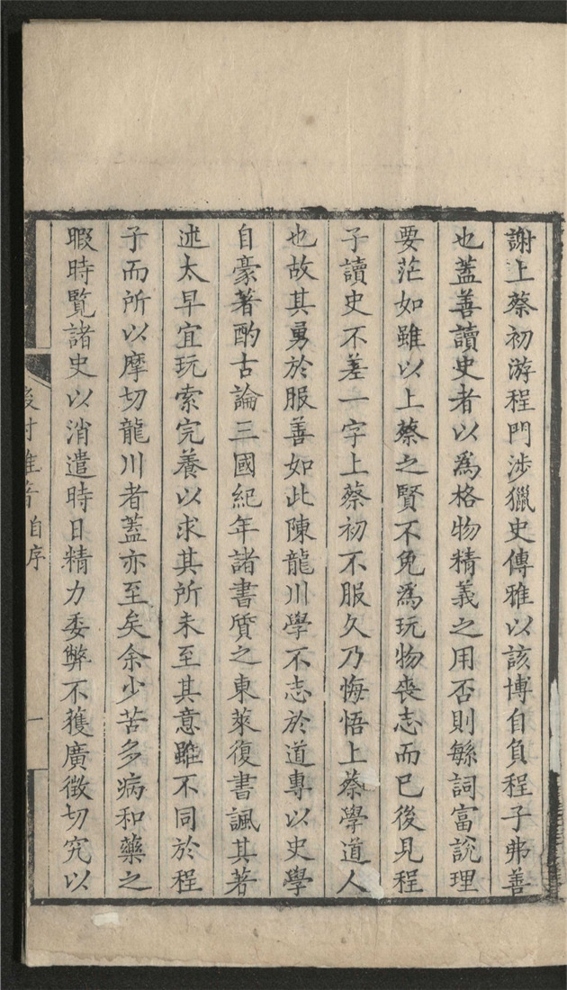 謝上蔡初游程門涉獵史傳雅以該博自負程子弗善
也蓋善讀史者以為格物精義之用否則緐詞富說理
要茫如雖以上蔡之賢不免為玩物喪志而已後見程
子讀史不差一字上蔡初不服久乃悔悟上蔡學道人
也故其勇於服善如此陳龍川學不志於道專以史學
自豪著酌古論三國紀年諸書質之東萊復書諷其著
述太早宜玩索完養以求其所未至其意雖不同於程
子而所以摩切龍川者蓋亦至矣余少苦多病和藥之
暇時覽諸史以消遣時日精力委弊不獲廣徵切究以
自序
一